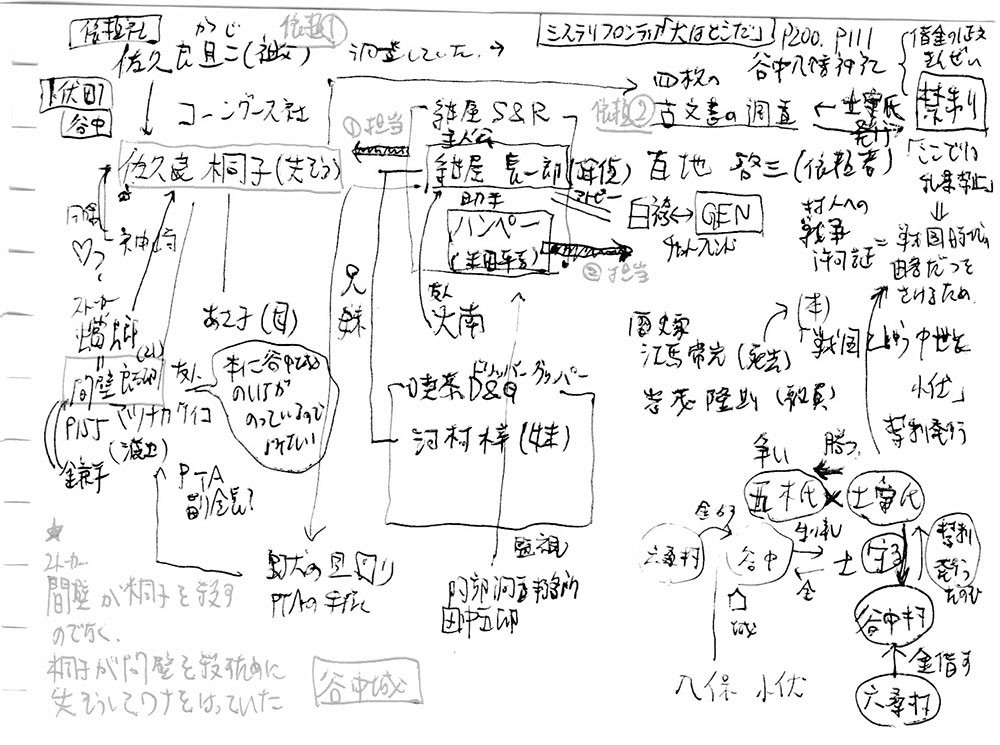 依頼主
かつじ
依頼①
佐久良且二(祖父)
調査していた。→
ミステリフロンティア「犬はどこだ」 P200. P111
谷中八幡神社
借金の証文
禁制
「ここでの乱暴禁止」
四枚の
依頼②
古文書の調査
谷中
コーングース社
①担当
紺屋 S&R
主人公
佐久良 桐子(失そう)
紺屋 長一郎(探偵)
百地 啓三(依頼者)
助手
ハンペー
(半田平吉)
白袴↔GEN
チャットフレンド
②担当
村人への
戦争
許可証
=戦国時代に
さけるため
同僚
神崎
ストーカー
友人
大南
兄
妹
(本)
歴史家
江馬常光(死去)
岩茂隆則(教員)
「戦国という中世と
小伏」
禁制発行
間壁良太郎
(21)
友人
本に谷中城
のことが
のっているので
P155 マツナカケイコ
(渡辺)
鎌手
喫茶D&G
ドリッパー グリッパー
河村梓(妹)
PTA
副会長?
野犬の見回り
PTAの手伝い
監視
阿部調査事務所
田中五郎
争い
勝つ
六桑村
谷中
城
士
守る
金
禁制
発行
谷中村
金借す
六桑村
八保 小伏
★
ストーカー
間壁が桐子を殺す
のでなく、
桐子が間壁を殺すために
失そうしてワナをはっていた
谷中城